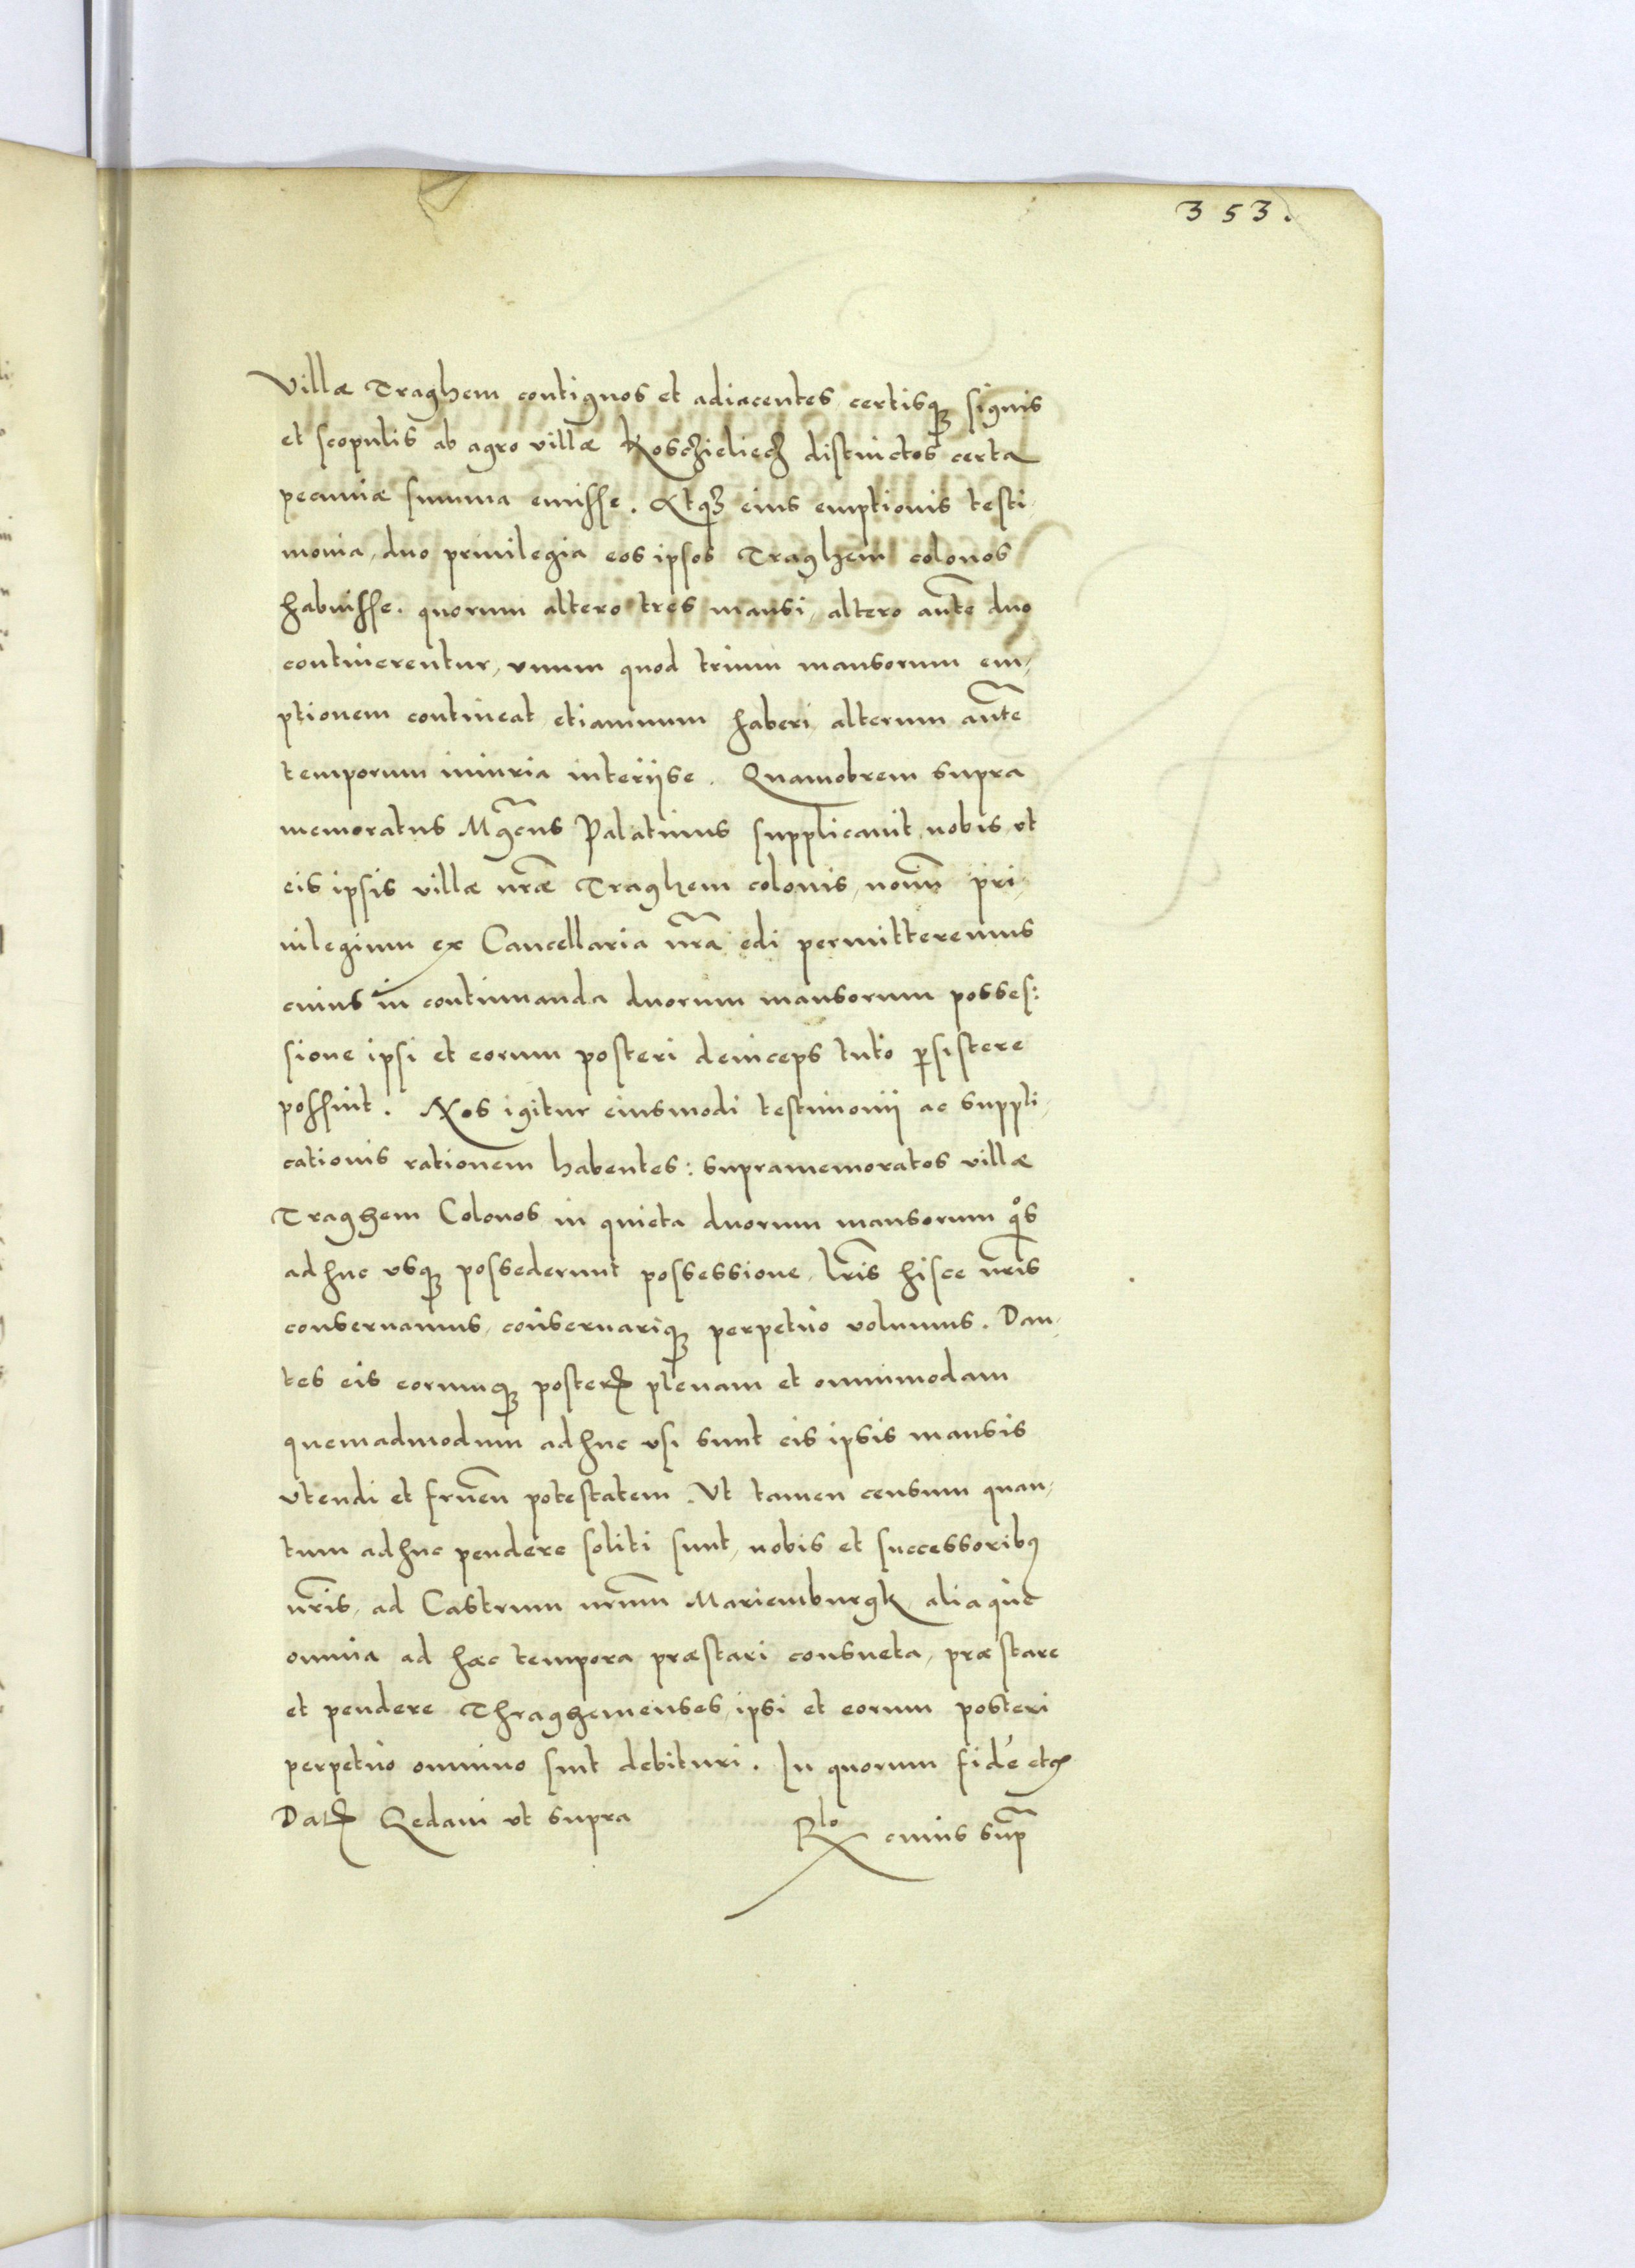 353.
Villæ Traghem contiguos et adiacentes certisq; signis
et scopulis ab agro villæ Kosczieliecz distinctos certa
pecuniæ summa emisse. Atq; eius emptionis testi-
monia, duo privilegia eos ipsos Traghem colonos
habuisse. quorum altero tres mansi, altero aūte duo
continerentur, vnum quod trium mansorum em-
ptionem contineat etiamnum haberi alterum aūte
temporum iniuria interijse. Quamobrem supra
memoratus Mgcus Palatinus supplicauit nobis, vt
eis ipsis villæ nr̃æ Traghem colonis, nouū pri-
uilegium ex Cancellaria nr̃a edi permitteremus
cuius in continuanda duorum mansorum posses:
sione ipsi et eorum posteri deinceps tuto p̲sistere
possint. Nos igitur eiusmodi testimonii ac suppli-
cationis rationem habentes: supramemoratos villæ
Traghem Colonos in quieta duorum mansorum qͦs
adhuc vsq; possederunt possessione, lr̃is hisce nr̃is
conseruamus, conseruariq; perpetuo volumus. Dan-
tes eis eorumq; posterꝭ plenam et omnimodam
quemadmodum adhuc vsi sunt eis ipsis mansis
vtendi et fruen̄ potestatem. Vt tamen censum quan-
tum adhuc pendere soliti sunt, nobis et successoribꝰ
nr̃is, ad Castrum nr̃um Mariemburgk, aliaque
omnia ad hæc tempora præstari consueta, præstare
et pendere Thraghemenses, ipsi et eorum posteri
perpetuo omnino sint debituri. In quorum fidē etcꝭ
Datꝭ Gedani vt supra Rlo cuius sup̃